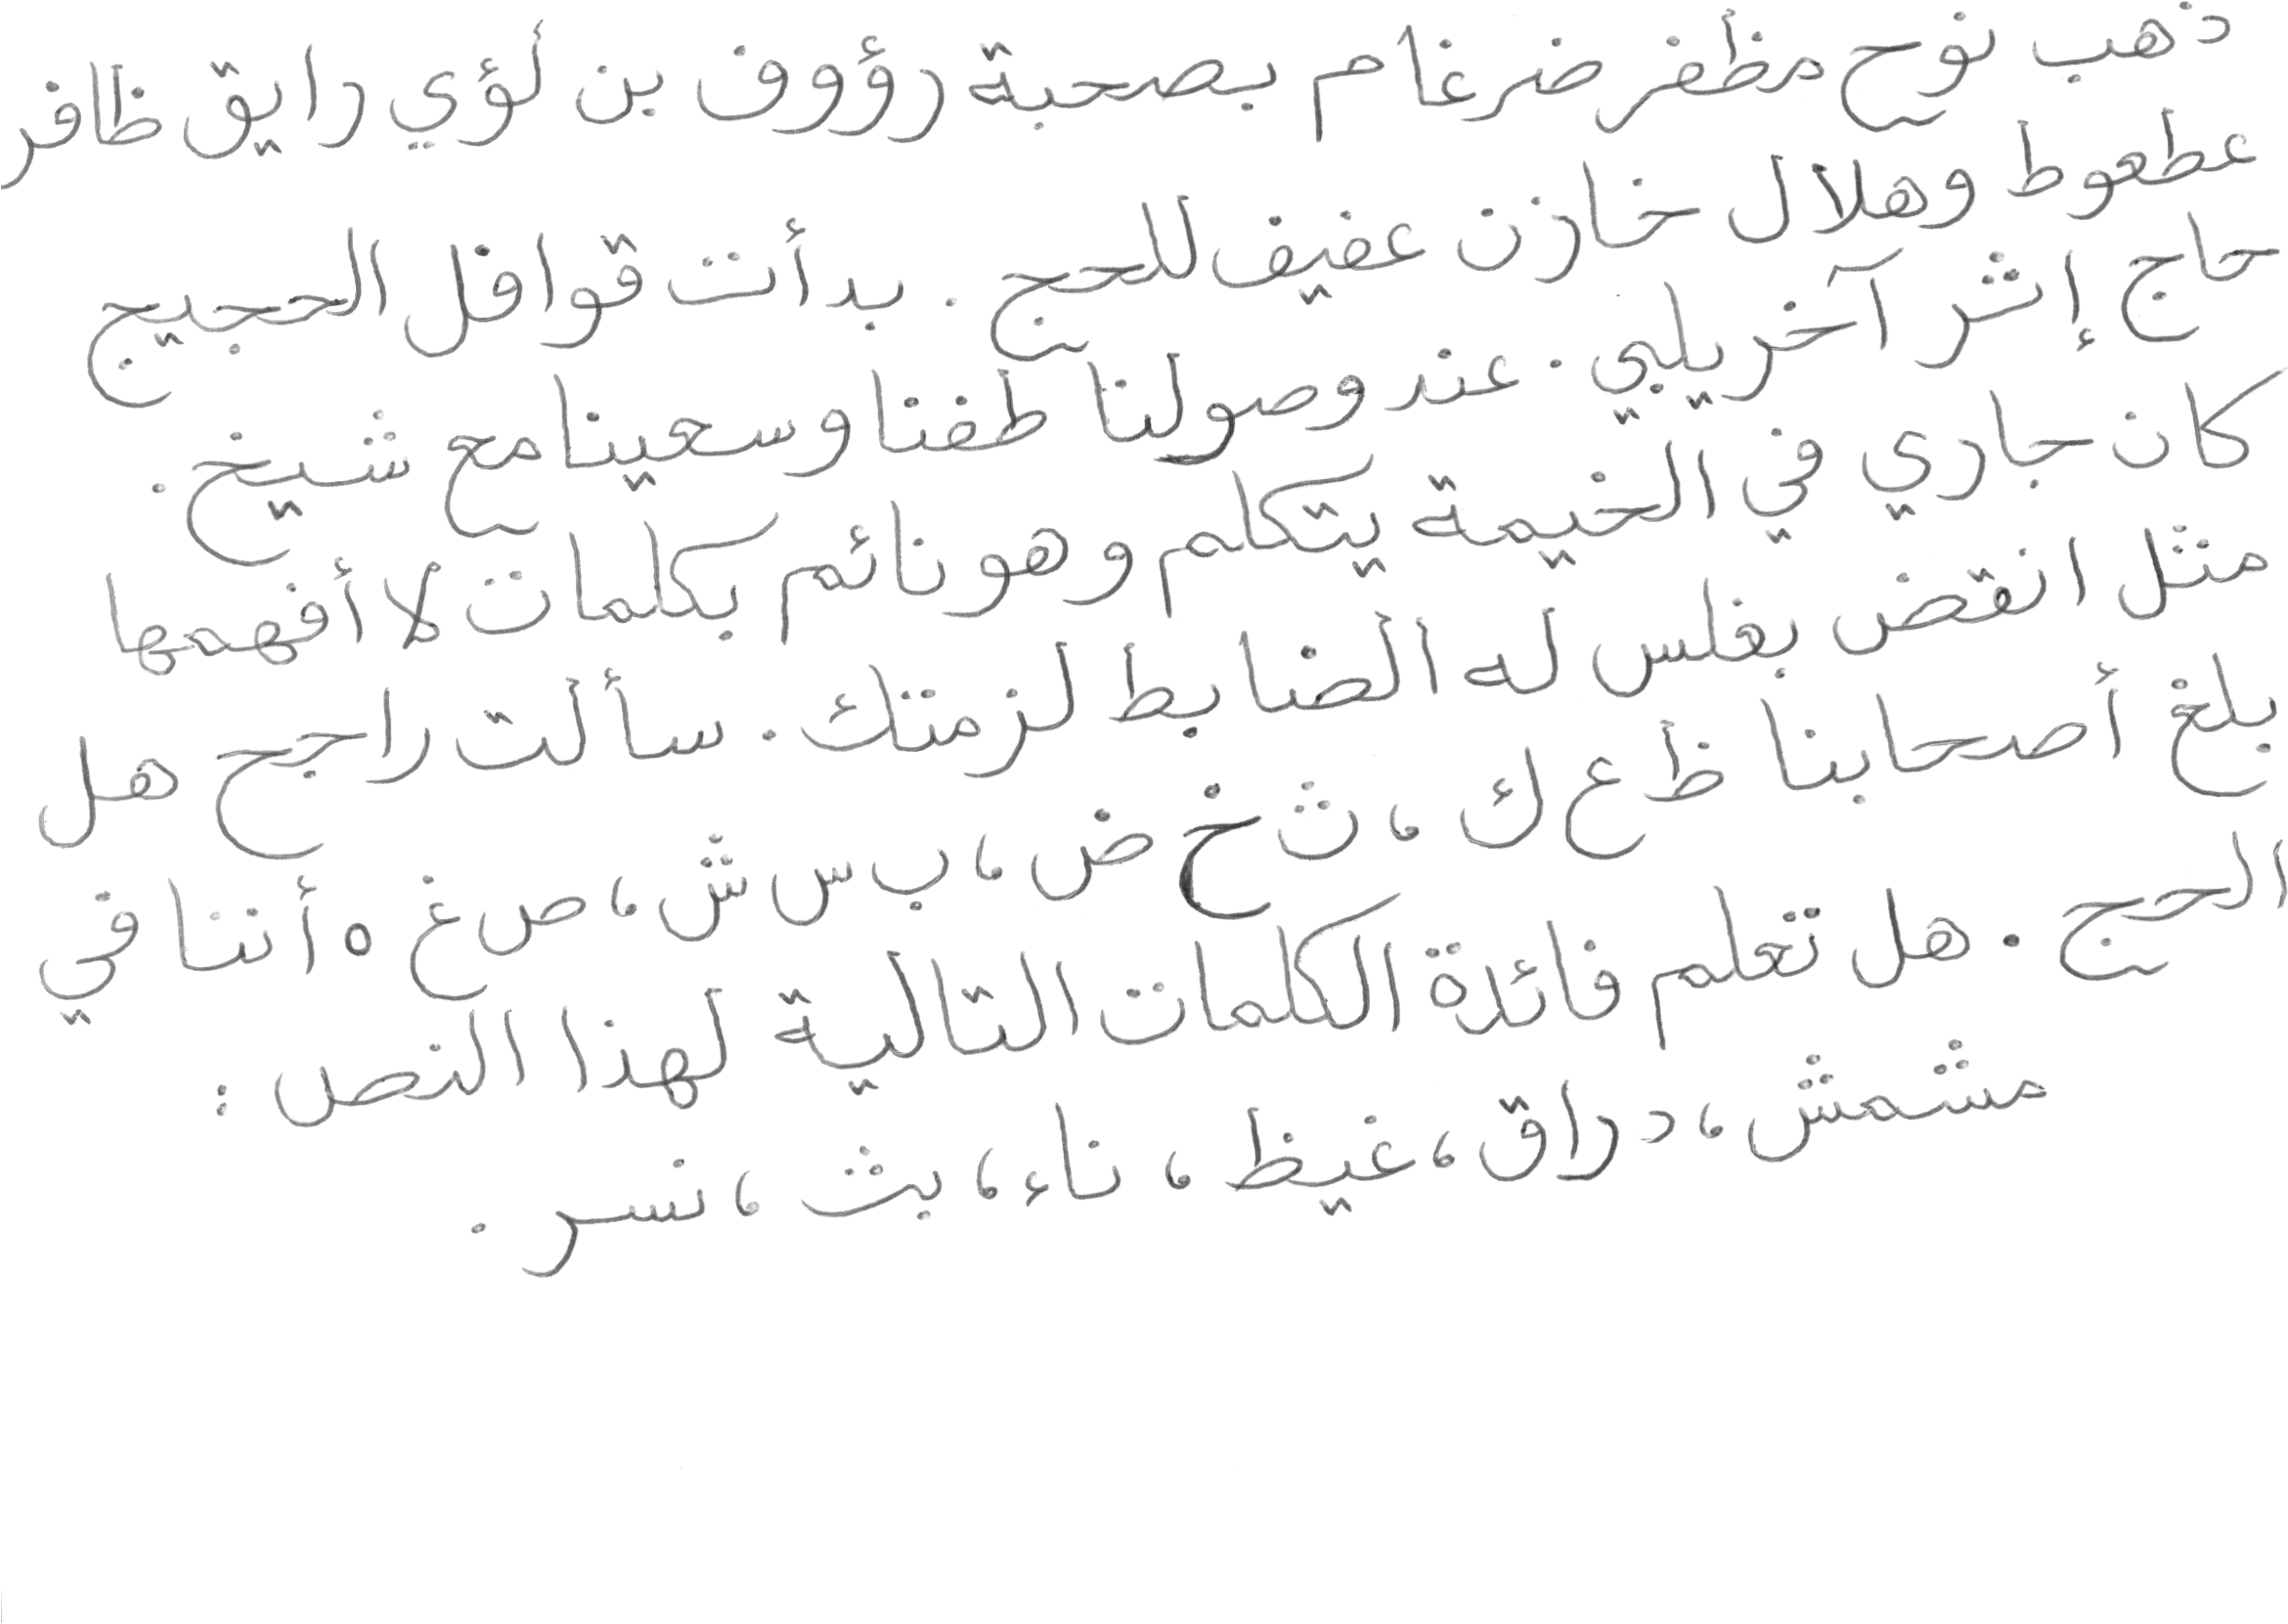 ذهب نوح مظفر ضرغام بصحبة رؤوف بن لؤي رايق ظافر
عطعوط وهلال خازن عفيف للحج . بدأت قوافل الحجيج
حاج إثر آخر يلبي . عند وصولنا طفنا وسعينا مع شيخ .
كان جاري في الخيمة يتكلم وهو نائم بكلمات لا أفهمها
مثل انقض بغلس له الضابط لزمتك . سألت راجح هل
بلغ أصحابنا ظ ع ك ، ث خ ض ، ب س ش ، ص غ ه أننا في
الحج . هل تعلم فائدة الكلمات التالية لهذا النص :
مشمش ، دراق ، غيظ ، ناء ، بث ، نسر .